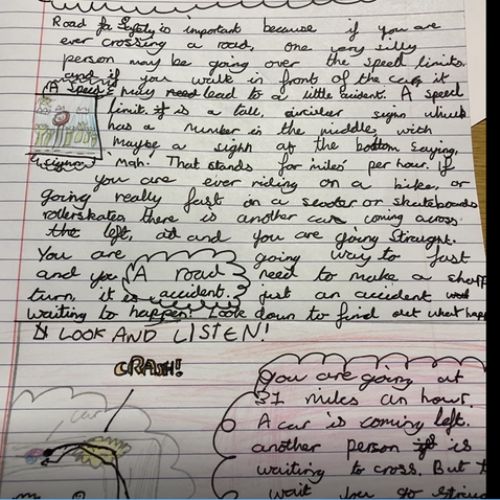 Road Safety is important because if you are
ever crossing a road, one very silly
person may be going over the speed limits.
and if you walk in front of the car, it
may lead to a little accident. A speed
limit. is a tall, circular sign which
has a number in the middle, with
maybe a sighn at the bottom saying,
'mph'. That stands for 'miles' per hour. If
you are ever riding on a bike, or
going really fast on a scooter or skateboards
rollerskates there is another car coming across
the left, and you are going straight.
You are going way to fast
and you need to make a sharp
turn, it is just an accident
waiting to happen! Look down to find out what happ
A road
accident.
LOOK AND LISTEN!
CRASH!
car
You are going at
31 miles an hour.
A car is coming left.
another person is
waiting to cross. But
wait